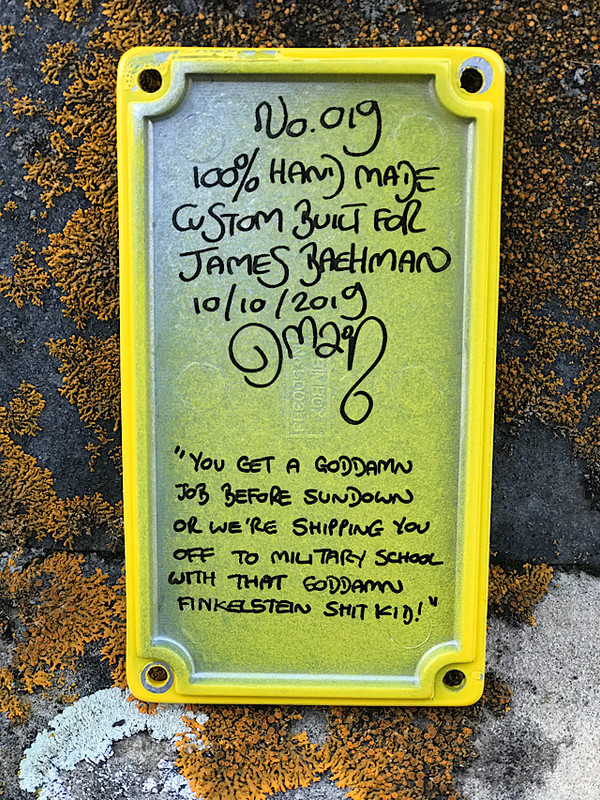 No. 019
100% HAND MADE
CUSTOM BUILT FOR
JAMES BAEHMAN
10/10/2019
"YOU GET A GODDAMN
JOB BEFORE SUNDOWN
OR WE'RE SHIPPING YOU
OFF TO MILITARY SCHOOL
WITH THAT GODDAMN
FINKELSTEIN SHIT KID!"